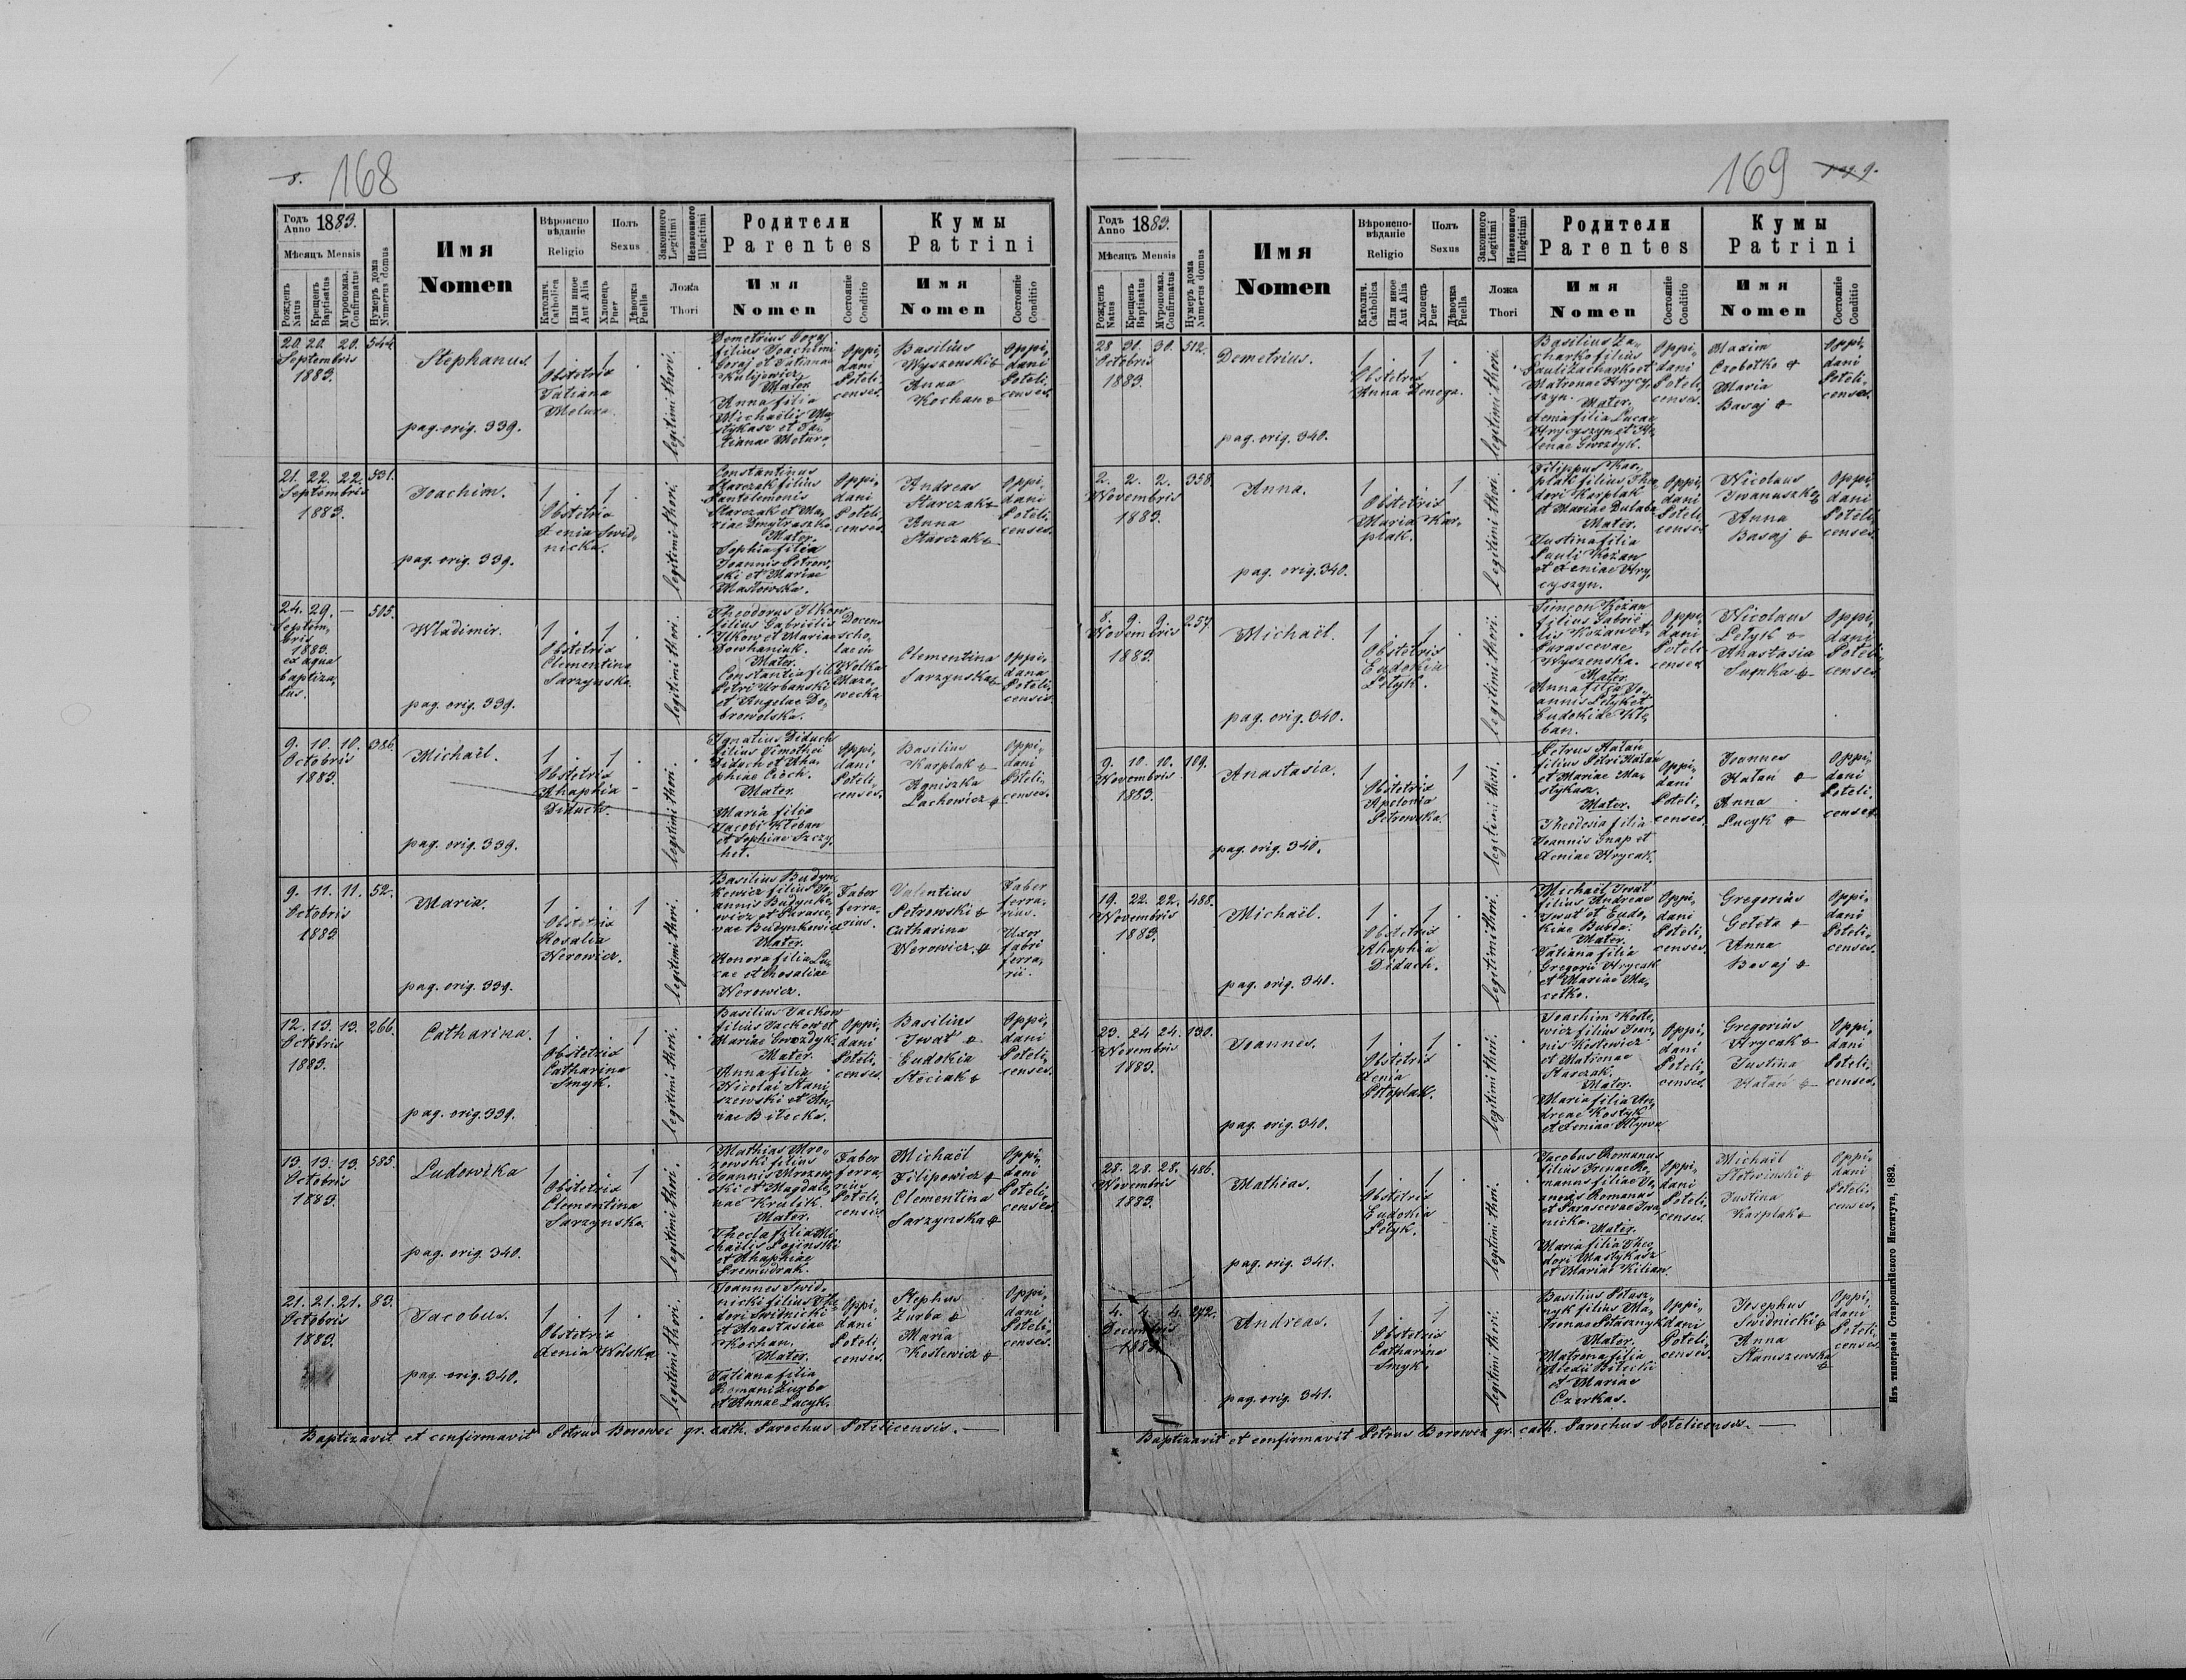 8. 168
Годъ Anno 1883.
Мѣсяцъ Mensis
Рожденъ Natus
Крещенъ Baptisatus
Мѵропомаз. Confirmatus
Нумеръ дома Numerus domus
Имя
Nomen
Вѣроисповѣданіе
Religio
Католич. Catholica
Или иное Aut Alia
Полъ
Sexus
Хлопецъ Puer
Дѣвочка Puella
Законного Legitimi
Незаконного Illegitimi
Ложа
Thori
Родители
Parentes
Имя
Nomen
Состояніе Conditio
Кумы
Patrini
Имя
Nomen
Состояніе Conditio
20. 20. 20. 544.
Septembris
1883.
Stephanus.
pag. orig. 339.
1 . 1 .
Obstetrix
Tatiana
legitimi thori.
filius Joachimi
Mater
Anna filia
Oppi-
dani
Poteli-
censes.
Basilius
Wyszenski
Anna
Kochan
Oppi-
dani
Poteli-
censes.
21. 22. 22. 531.
Septembris
1883.
Joachim.
pag. orig. 339.
1 . 1 .
Obstetrix
Xenia Swid-
nicka.
legitimi thori.
Constantinus
Starczak filius
Pantelemonis
Starczak et Ma-
riae Dmytraszko.
Mater.
Sophia filia
Joannis Petrow-
ski et Mariae
Masłowska.
Oppi-
dani
Poteli-
censes.
Andreas
Starczak
Anna
Starczak
Oppi-
dani
Poteli-
censes.
24. 29. — 505.
Septem-
bris
1883.
ex aqua
baptiza-
tus.
Wladimir.
pag. orig. 339.
1 . 1 .
Obstetrix
Clementina
Sarzynska.
legitimi thori.
Theodorus Ilkow
filius Gabrielis
Ilkow et Mariae
Dowhaniuk.
Mater.
Constantia filia
Petri Urbanski
et Angelae Do-
browolska.
Docens
scho-
lae in
Wolka
Mazo-
wiecka
Clementina
Sarzynska
Oppi-
dana
Poteli-
censis.
9. 10. 10. 386.
Octobris
1883.
Michaël.
pag. orig. 339.
1 . 1 .
Obstetrix
Ahaphia
Diduch.
legitimi thori.
Ignatius Diduch
filius Timothei
Diduch et Aha-
phiae Cioch.
Mater.
Maria filia
Jacobi Kłeban
et Sophiae Szczy-
het.
Oppi-
dani
Poteli-
censes.
Basilius
Karplak
Agniszka
Lachowicz
Oppi-
dani
Poteli-
censes.
9. 11. 11. 52.
Octobris
1883.
Maria.
pag. orig. 339.
1 . . 1
Obstetrix
Rosalia
Nerowicz.
legitimi thori.
Basilius Budyn-
kewicz filius Jo-
annis Budynke-
wicz et Parasce-
vae Budynkewicz
Mater.
Honora filia Lu-
cae et Rosaliae
Nerowicz.
Faber
ferra-
rius.
Valentius
Petrowski
Catharina
Nerowicz.
Faber
ferra-
rius.
Uxor
fabri
ferra-
rii.
12. 13. 13. 266.
Octobris
1883.
Catharina.
pag. orig. 339.
1 . . 1
Obstetrix
Catharina
Smyk.
legitimi thori.
Basilius Jackow
filius Jackow et
Mariae Gwozdyk.
Mater.
Anna filia
Nicolai Stani-
szewski et An-
nae Bilecka.
Oppi-
dani
Poteli-
censes.
Basilius
Iwat
Eudokia
Steciak
Oppi-
dani
Poteli-
censes.
13. 13. 13. 585.
Octobris
1883.
Ludowika
pag. orig. 340.
1 . . 1
Obstetrix
Clementina
Sarzynska.
legitimi thori.
Mathias Mro-
zowski filius
Joannis Mrozow-
ski et Magdale-
nae Krulik.
Mater.
Thecla filia Mi-
chaëlis
et Ahaphiae
Premudrak.
Faber
ferra-
rius
Poteli-
censis.
Michaël
Filipowicz
Clementina
Sarzynska
Oppi-
dani
Poteli-
censes.
21. 21. 21. 83.
Octobris
1883.
Jacobus.
pag. orig. 340.
1 . 1 .
Obstetrix
Xenia Wolska
legitimi thori.
Joannes Swid-
nicki filius
Swidnicki
et Anastasiae
Kochan.
Mater.
Tatiana filia
Romani Zurba
et Annae Lucyk.
Oppi-
dani
Poteli-
censes.
Stephus
Zurba
Maria
Kostewicz
Oppi-
dani
Poteli-
censes.
Baptizavit et confirmavit Petrus Borowec gr. cath. Parochus Potelicensis.
169 pag. 9.
Годъ Anno 1883.
Мѣсяцъ Mensis
Рожденъ Natus
Крещенъ Baptisatus
Мѵропомаз. Confirmatus
Нумеръ дома Numerus domus
Имя
Nomen
Вѣроисповѣданіе
Religio
Католич. Catholica
Или иное Aut Alia
Полъ
Sexus
Хлопецъ Puer
Дѣвочка Puella
Законного Legitimi
Незаконного Illegitimi
Ложа
Thori
Родители
Parentes
Имя
Nomen
Состояніе Conditio
Кумы
Patrini
Имя
Nomen
Состояніе Conditio
28. 30. 30. 512.
Octobris
1883.
Demetrius.
pag. orig. 340.
1 . 1 .
Obstetrix
Anna Zenega.
legitimi thori.
Basilius Za-
charko filius
Pauli Zacharko et
Matronae Hrycy-
szyn.
Mater.
Xenia filia Lucae
Hrycyszyn et He-
lenae Gwozdyk.
Oppi-
dani
Poteli-
censes.
Maxim
Czobotko
Maria
Basaj
Oppi-
dani
Poteli-
censes.
2. 2. 2. 358.
Novembris
1883.
Anna.
pag. orig. 340.
1 . . 1
Obstetrix
Maria Kar-
plak.
legitimi thori.
Filippus Kar-
plak filius Theo-
dori Karplak
et Mariae Dulaba
Mater.
Justina filia
Pauli Kożan
et Xeniae Hry-
cyszyn.
Oppi-
dani
Poteli-
censes
Nicolaus
Iwanuszko
Anna
Basaj
Oppi-
dani
Poteli-
censes.
8. 9. 9. 257.
Novembris
1883.
Michaël.
pag. orig. 340.
1 . 1 .
Obstetrix
Eudokia
Petyk.
legitimi thori.
Simeon Kożan
filius Gabrie-
lis Kożan et
Parascevae
Wyszenska.
Mater.
Anna filia Jo-
annis Petyk et
Eudokiae Kłe-
ban.
Oppi-
dani
Poteli-
censes
Nicolaus
Petyk
Anastasia
Oppi-
dani
Poteli-
censes
9. 10. 10. 109.
Novembris
1883.
Anastasia.
pag. orig. 340.
1 . . 1
Obstetrix
Apolonia
Petrowska
legitimi thori.
Petrus Hałań
filius Petri Hałań
et Mariae Ma-
stykasz.
Mater.
Theodosia filia
Joannis Gnap et
Xeniae Hrycak.
Oppi-
dani
Poteli-
censes.
Joannes
Hałań
Anna
Lucyk
Oppi-
dani
Poteli-
censes.
19. 22. 22. 488.
Novembris
1883.
Michaël.
pag. orig. 340.
1 . 1 .
Obstetrix
Ahaphia
Diduch.
legitimi thori.
Michaël Iwat
filius Andreae
Iwat et Eudo-
kiae Bubda.
Mater.
Tatiana filia
Gregorii Hrycak
et Mariae Ma-
cełko.
Oppi-
dani
Poteli-
censes.
Gregorius
Geleta
Anna
Basaj
Oppi-
dani
Poteli-
censes.
23. 24. 24. 130.
Novembris
1883.
Joannes.
pag. orig. 340.
1 . 1 .
Obstetrix
Xenia
Potoplak.
legitimi thori.
Joachim Koste-
wicz filius Joan-
nis Kostewicz
et Matronae
Starczak.
Mater.
Maria filia An-
dreae Kostyk
et Xeniae Hływa
Oppi-
dani
Poteli-
censes.
Gregorius
Hrycak
Justina
Hałań
Oppi-
dani
Poteli-
censes.
28. 28. 28. 486.
Novembris
1883.
Mathias.
pag. orig. 341.
1 . 1 .
Obstetrix
Eudokia
Petyk.
legitimi thori.
Jacobus Romanus
filius Irenae Ro-
manus filiae Jo-
annis Romanus
et Parascevae Iwa-
nicka.
Mater.
Maria filia Theo-
dori Mastykasz
et Mariae Kilian.
Oppi-
dani
Poteli-
censes.
Michaël
Justina
Karplak
Oppi-
dani
Poteli-
censes.
4. 4. 4. 272.
Decembris
1883.
Andreas.
pag. orig. 341.
1 . 1
Obstetrix
Catharina
Smyk.
legitimi thori.
Basilius Potasz-
nyk filius Ma-
tronae Potasznyk
Mater.
Matrona filia
Alexii Bilecki
et Mariae
Czerkas.
Oppi-
dani
Poteli-
censes.
Josephus
Swidnicki
Anna
Staniszewska
Oppi-
dani
Poteli-
censes.
Baptizavit et confirmavit Petrus Borowec gr. cath. Parochus Potelicensis.
Изъ типографіи Ставропигійского Института, 1882.